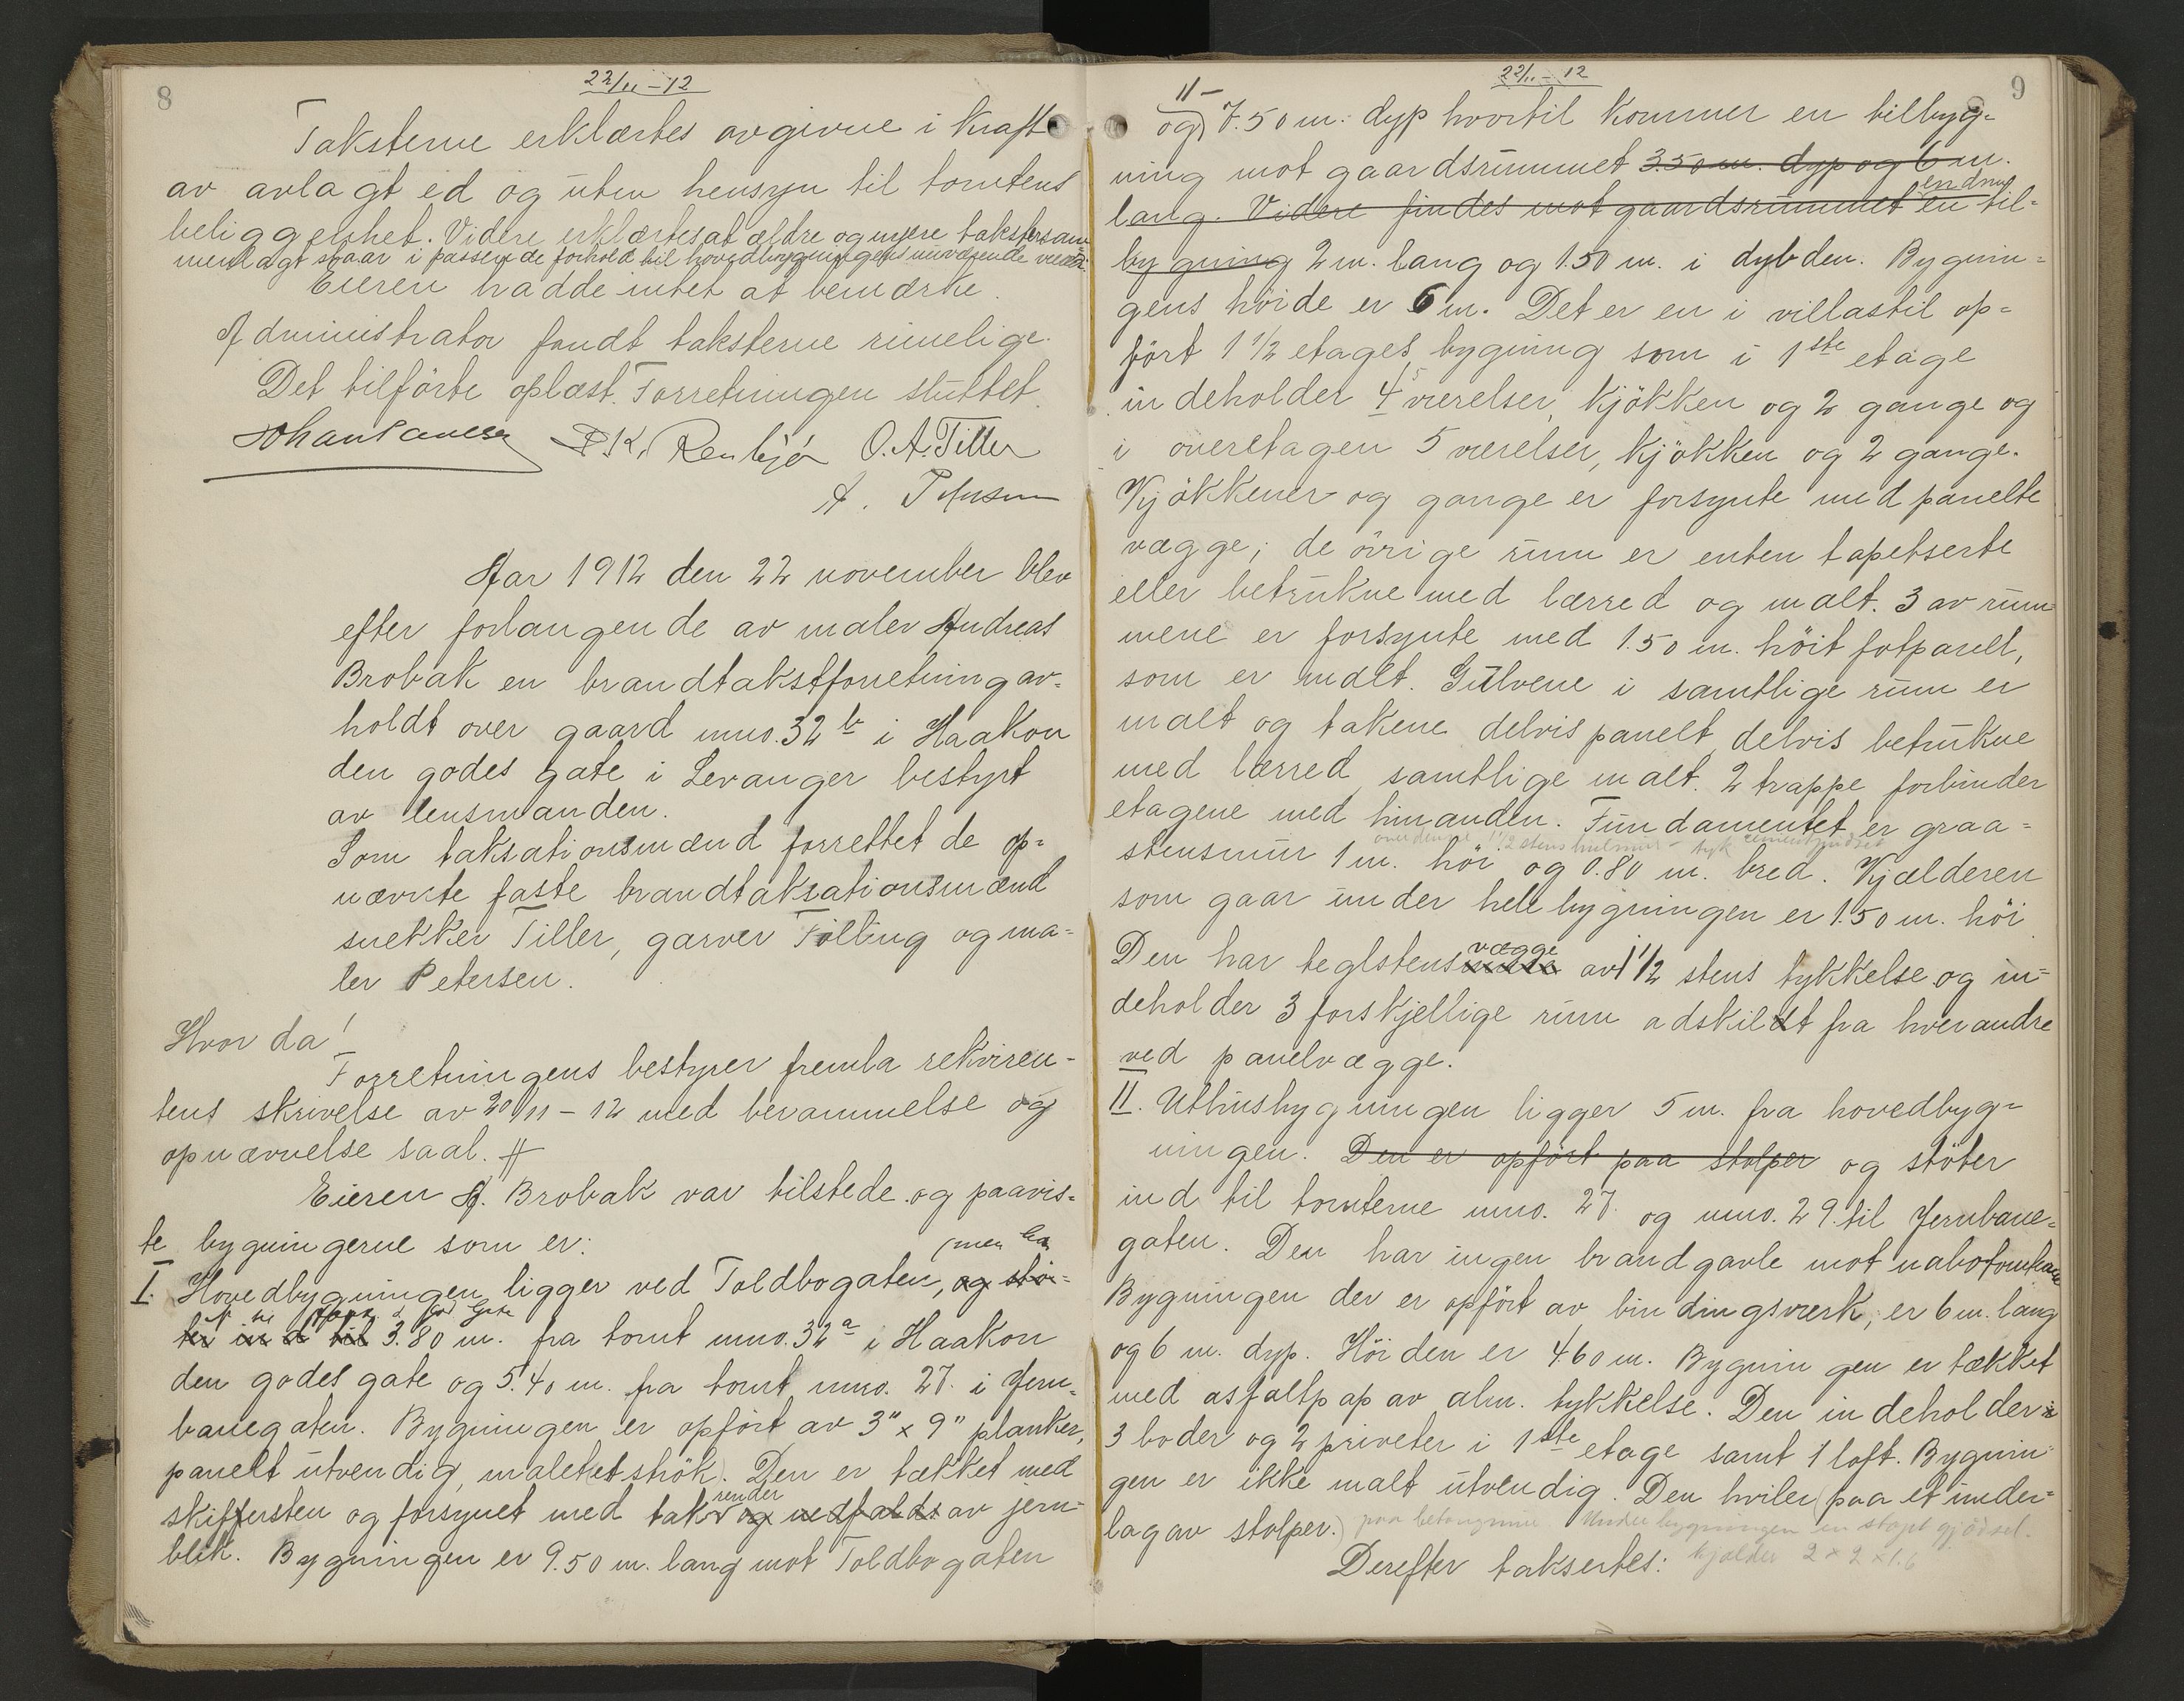 8
22/11 - 12
Taksterne erklærtes avgivne i kraft
av avlagt ed og uten hensyn til tomtens
beliggenhet. Videre erklærtes at ældre og nyere takster sam
menlagt staar i passende forhold til hovedbygningens nuværende værdi.
Eieren hadde intet at bemærke.
Administrator fandt taksterne rimelige.
Det tilförte oplæst. Forretningen sluttet.
O. A. Tiller
Aar 1912 den 22 november blev
efter forlangende av maler Andreas
Brobak en brandtakstforretning av-
holdt over gaard mno. 32 b i Haakon
den godes gate i Levanger bestyrt
av lensmanden.
Som taksationsmænd forrettet de op-
nævnte faste brandtaksationsmænd
snekker Tiller, garver Fölling og ma-
ler Petersen.
Hvor da!
Forretningens bestyrer fremla rekviren-
tens skrivelse av 20/11 - 12 med berammelse og
opnævnelse saal. #
Eieren A. Brobak var tilstede og paavis-
te bygningerne som er:
(men
I. Hovedbygningen ligger ved Toldbogaten, og stö-
ter ind til 3.80 m. fra tomt mno. 32 a i Haakon
den godes gate og 5.40 m. fra tomt mno. 27 i Jern-
banegaten. Bygningen er opfört av 3" x 9" planker,
panelt utvendig, malet et strök). Den er tækket med
render
skiffersten og forsynet med tak og nedfalds av jern-
blik. Bygningen er 9.50 m. lang mot Toldbogaten
22/11 - 12
9
11 -
og) 7.50 m. dyp hvortil kommer en tilbyg-
ning mot gaardsrummet 3.50 m. dyp og 6 m.
lang. Videre findes mot gaardsrummet en til-
bygning 2 m. lang og 1.50 m. i dybden. Bygnin-
gens höide er 6 m. Det er en i villastil op-
fört 1 1/2 etages bygning som i 1ste etage
indeholder 4 værelser, kjökken og 2 gange og
i överetagen 5 værelser, kjökken og 2 gange.
Kjökkener og gange er forsynte med panelte
vægge; de övrige rum er enten tapetserte
eller betrukne med lærred og malt. 3 av rum-
mene er forsynte med 1.50 m. höit fotpanel,
som er malt. Gulvene i samtlige rum er
malt og takene delvis panelt, delvis betrukne
med lærred, samtlige malt. 2 trappe forbinder
etagene med hinanden. Fundamentet er graa-
stensmur 1 m. höi og 0.80 m. bred. Kjælderen
som gaar under hele bygningen er 1.50 m. höi
vægge
Den har teglstens av 1 1/2 stens tykkelse og in-
deholder 3 forskjellige rum adskildt fra hverandre
ved panelvægge.
II. Uthusbygningen ligger 5 m. fra hovedbyg-
ningen. Den er opfört paa stolper og stöter
ind til tomterne mno. 27 og mno. 29 til Jernbane-
gaten. Den har ingen brandgavle mot nabotomtene
Bygningen der er opfört av bindingsværk, er 6 m. lang
og 6 m. dyp. Höiden er 4.60 m. Bygningen er tækket
med asfaltpap av alm. tykkelse. Den indeholder
3 boder og 2 priveter i 1ste etage samt 1 loft. Bygnin-
gen er ikke malt utvendig. Den hviler (paa et under-
lag av stolper.) paa betongmur. Under bygningen en stöpt gjödsel-
kjælder 2 x 2 x 1.6
Derefter taksertes: